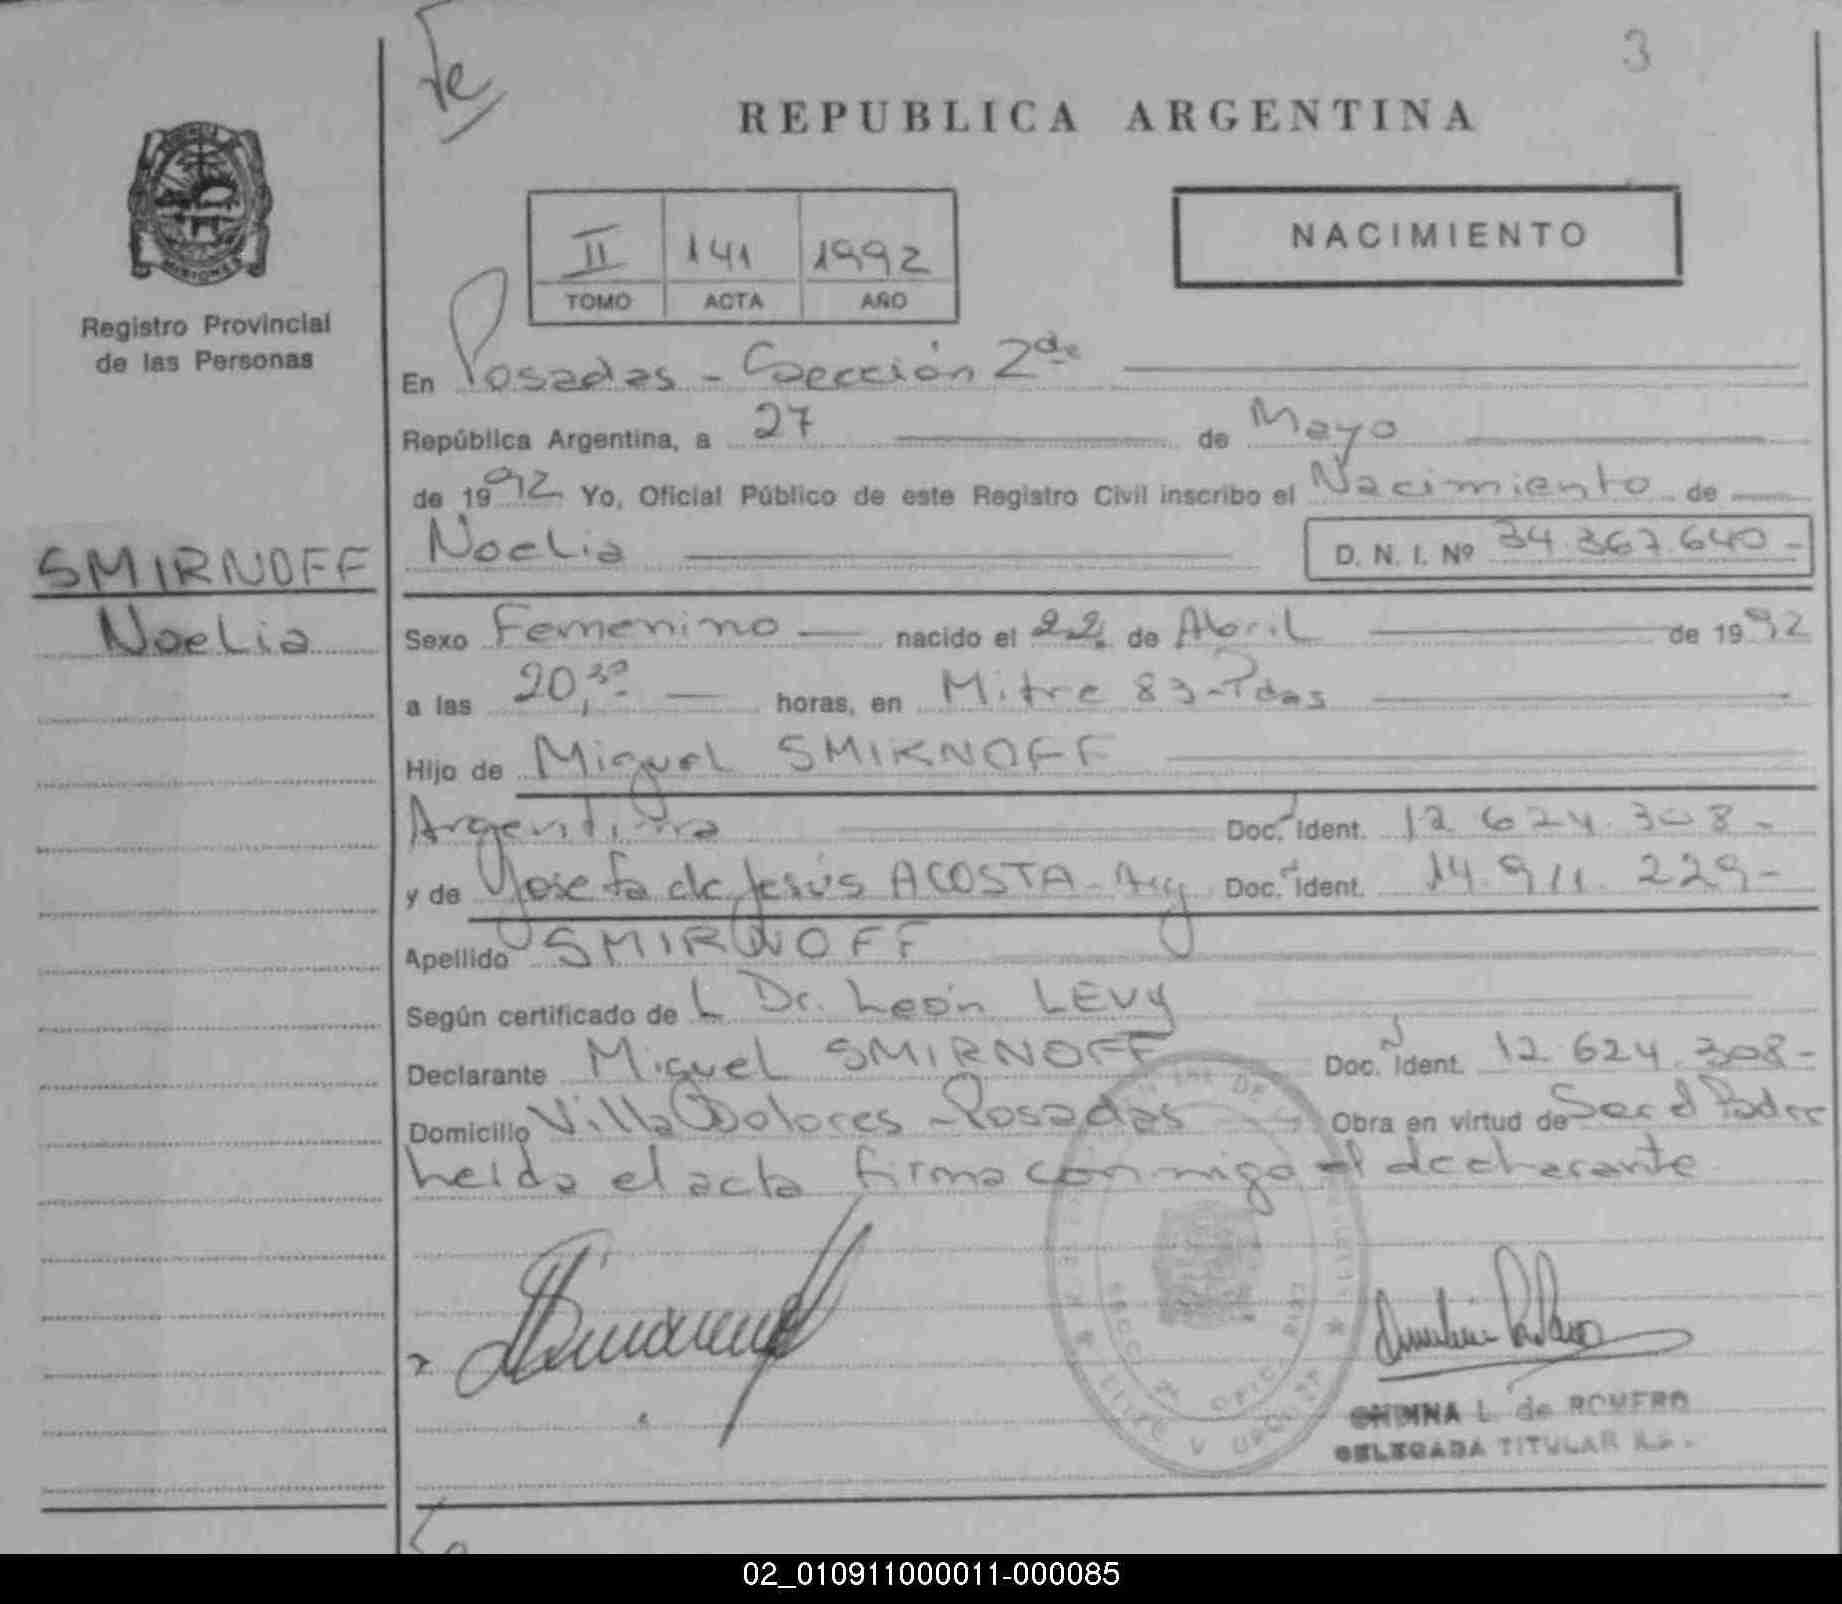 3
REPUBLICA ARGENTINA
II 141 1992
TOMO ACTA AÑO
NACIMIENTO
MISIONES
Registro Provincial
de las Personas
SMIRNOFF
Noelia
En Posadas - Sección 2da
República Argentina, a 27 de Mayo
de 1992 Yo, Oficial Público de este Registro Civil inscribo el Nacimiento de
Noelia D. N. I. Nº 34.367.640-
Sexo Femenino nacido el 22 de Abril de 1992
a las 20,30 horas, en Mitre 83-Pdas
Hijo de Miguel SMIRNOFF
Argentina Doc. Ident. 12.624.308-
y de Josefa de Jesús ACOSTA - Arg Doc. Ident. 14.911.229-
Apellido SMIRNOFF
Según certificado de L Dr. León LEVY
Declarante Miguel SMIRNOFF Doc. Ident. 12.624.308-
Domicilio Villa Dolores - Posadas Obra en virtud de Ser el Padre
Leida el acta firma conmigo el declarante
L. de ROMERO
DELEGADA TITULAR
02_010911000011-000085